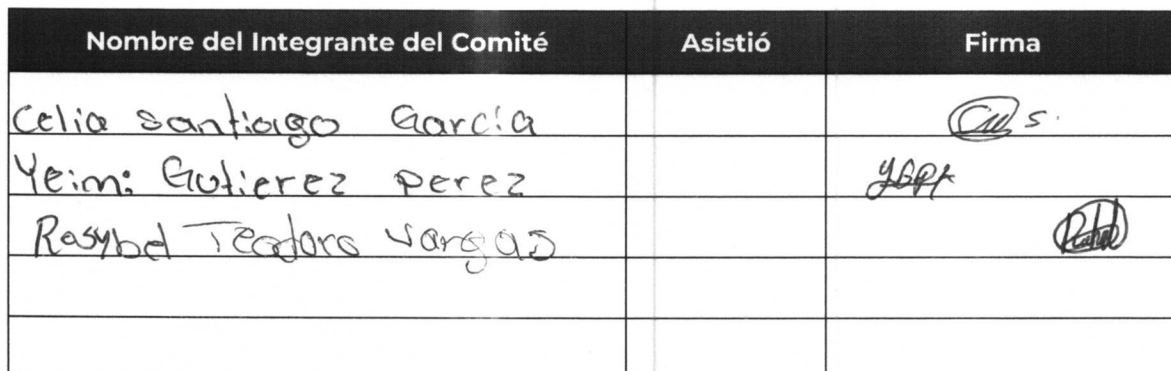 Nombre del Integrante del Comité Asistió Firma
Celia Santiago García
Yeimi Gutierez perez
Rosybel Teodoro Vargas